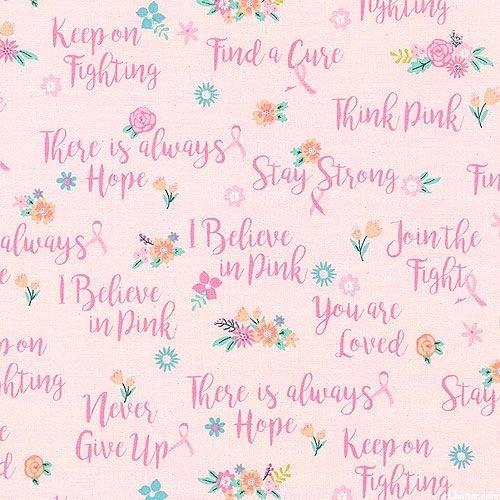 Fighting
Keep on
Fighting
Find a Cure
Think Pink
There is always
Hope
Stay Strong
Fin
always
I Believe
in Pink
Join the
Fight
I Believe
in Pink
You are
Loved
p on
ghting
There is always
Hope
Stay
Never
Give Up
Keep on
Fighting